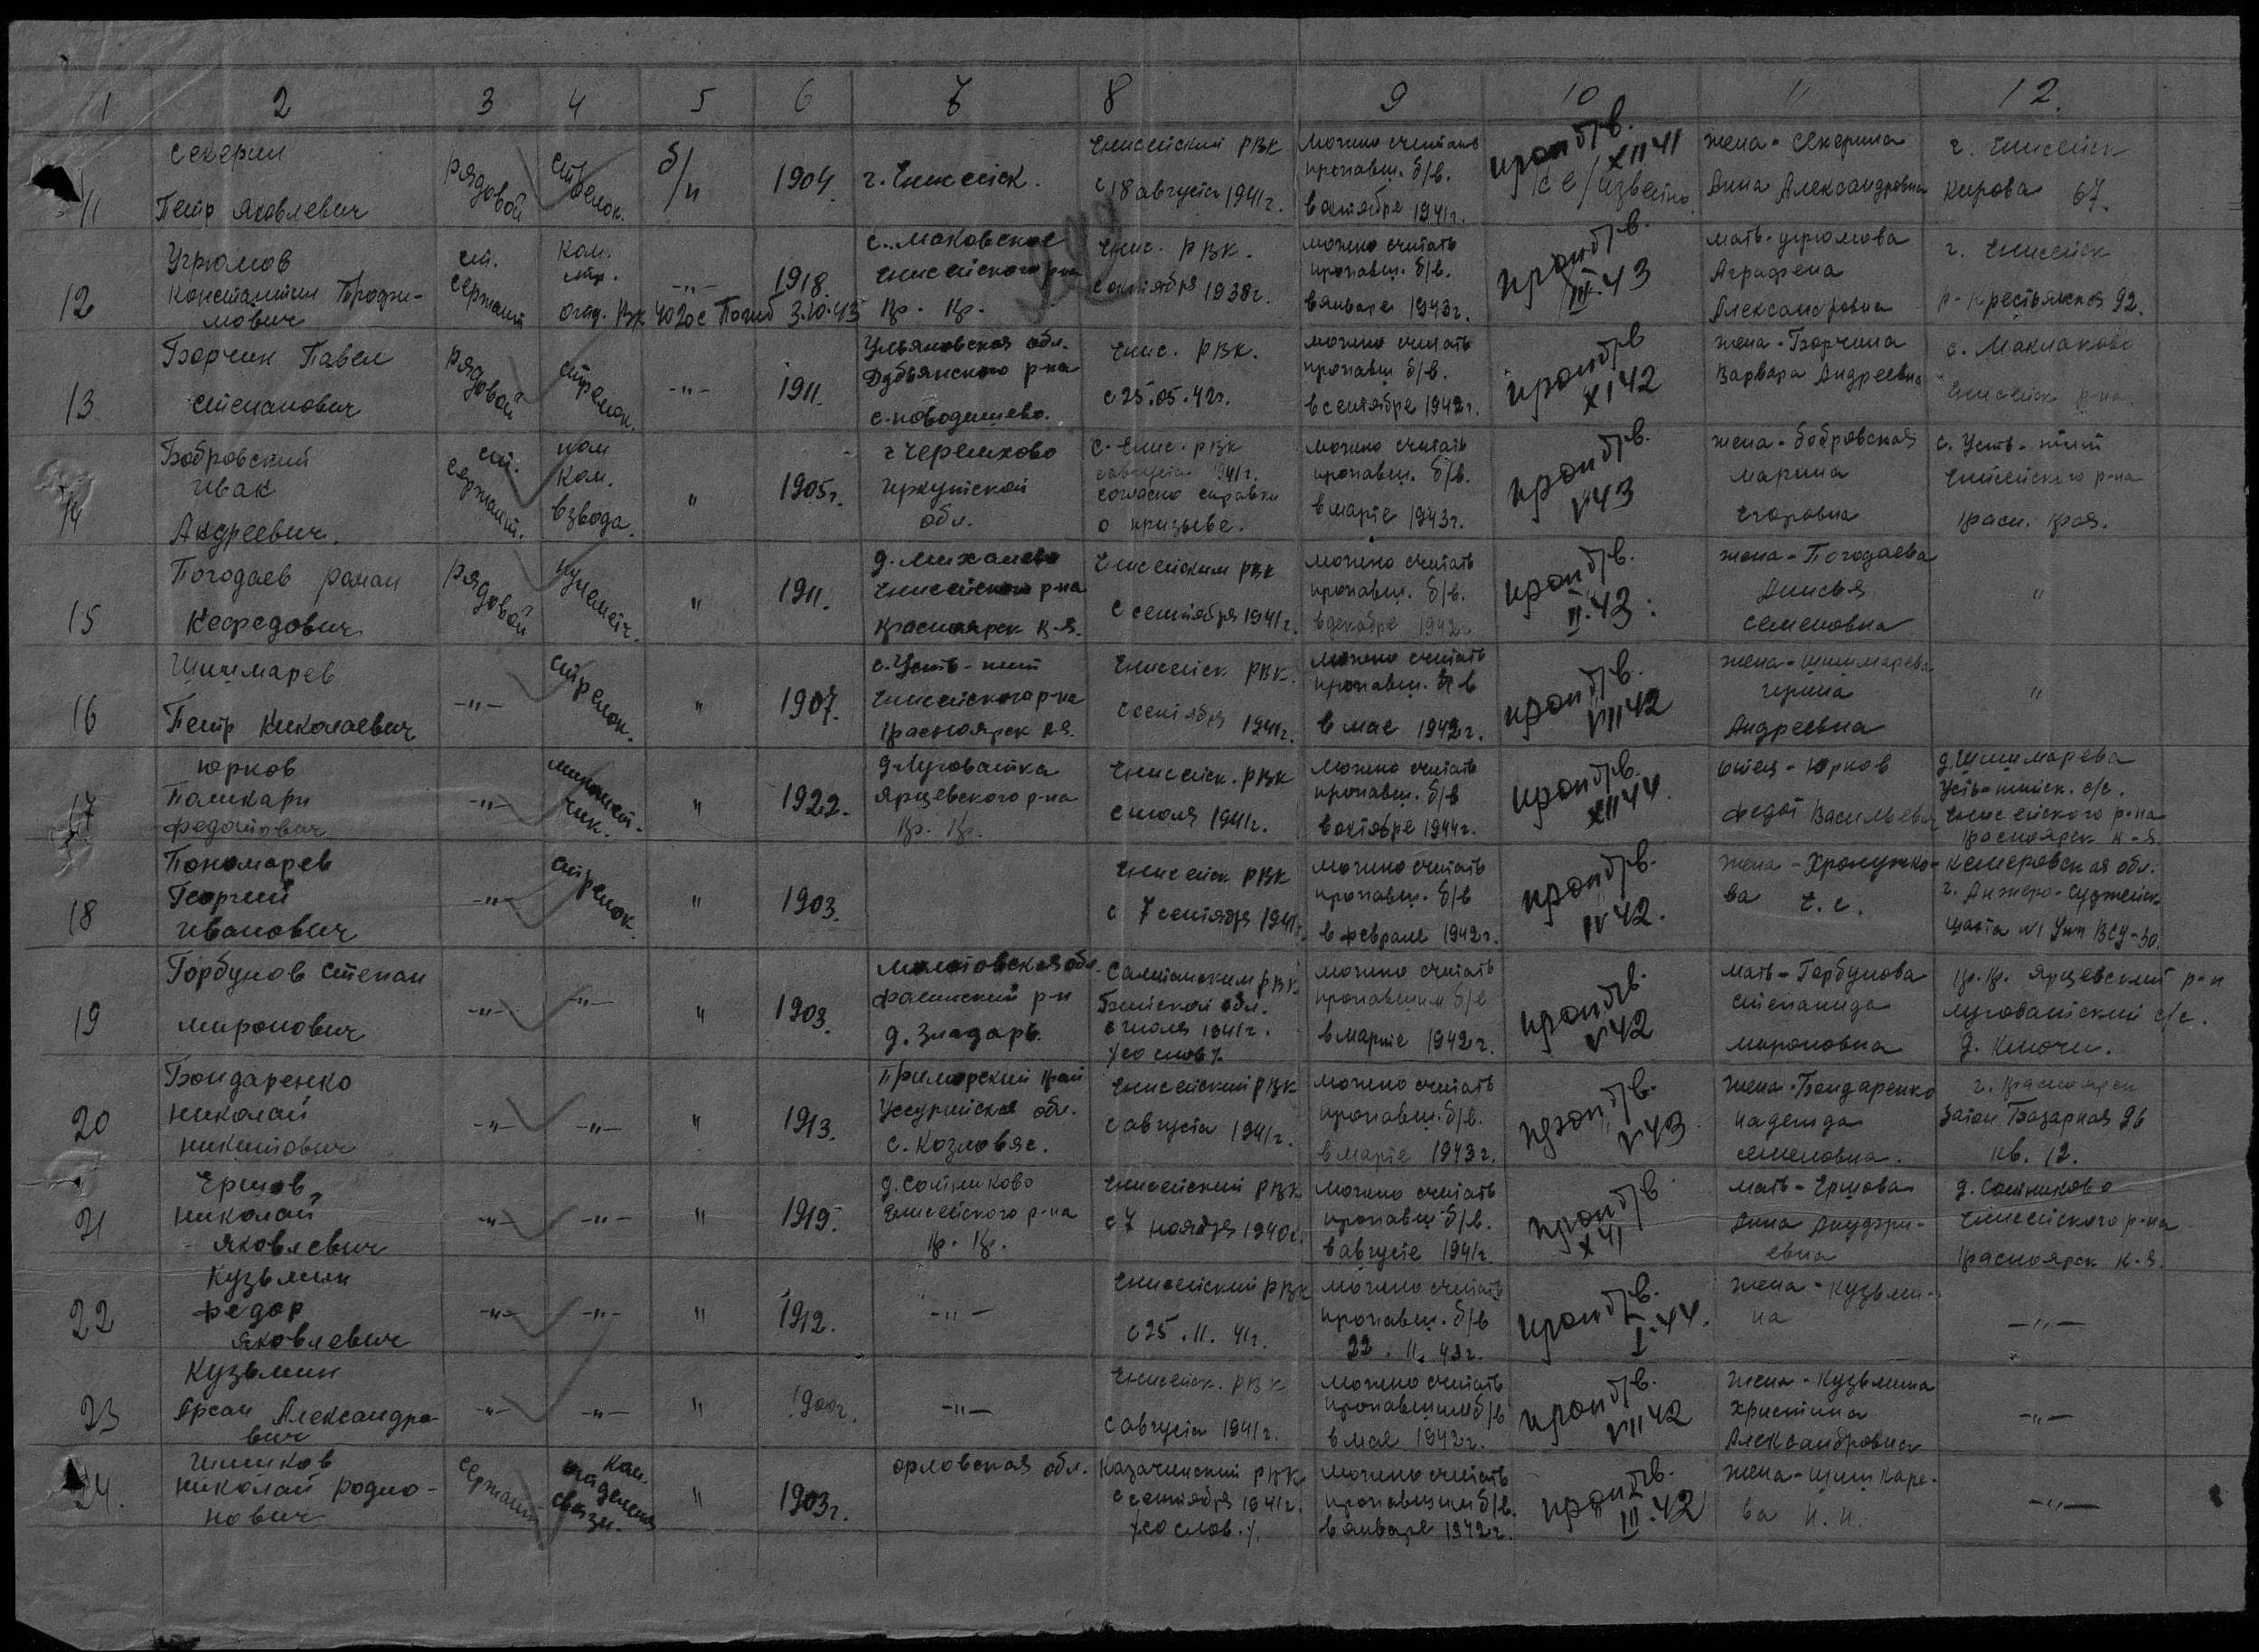 1 2 3 4 5 6 7 8 9 10 11 12.
11 Секерин
Петр Яковлевич
рядовой
стрелок.
б/п
1904.
г. Енисейск.
Енисейский РВК
с 18 августа 1941г.
можно считать
пропавш. б/в.
в октябре 1941г.
проп б/в.
XII 41
жена - Секерина
Анна Александровна
г. Енисейск
Кирова 67.
12 Угрюмов
Константин
мович
ст.
сержант
ком.
стр.
отд. Вх 4020с Погиб 3.10.43
-"-
1918.
с. Маковское
Енисейского р-на
Кр. Кр.
Енис. РВК.
с октября 1938г.
можно считать
пропавш. б/в.
в январе 1943г.
проп б/в.
III 43
мать - Угрюмова
Аграфена
Александровна
г. Енисейск
р-Крестьянская 92.
13 Борчин Павел
Степанович
рядовой
стрелок.
-"-
1911.
Ульяновская обл.
р-на
Енис. РВК.
с 25.05.42г.
можно считать
пропавш б/в.
в сентябре 1942г.
проп б/в
XI 42
жена - Борчина
Варвара Андреевна
с. Маклаково
Енисейск р-на.
14 Бобровский
Иван
Андреевич.
ст.
сержант.
пом
ком.
взвода.
"
1905г.
г Черемхово
Иркутской
обл.
с. Енис. РВК
августа 1941г.
согласно справки
о призыве.
можно считать
пропавш. б/в.
в марте 1943г.
проп б/в.
V 43
жена - Бобровская
Марина
Егоровна
с. Усть-пит
Енисейского р-на
Красн. края.
15 Погодаев Роман
Нефедович
рядовой
пулеметч.
"
1911.
Енисейского р-на
Красноярск к-я.
Енисейским РВК
с сентября 1941г.
можно считать
пропавш. б/в.
в декабре 1942г
проп б/в.
II.43.
жена - Погодаева
Анисья
Семеновна
"
16 Шишмарев
Петр Николаевич
-"-
стрелок.
"
1907.
с. Усть-пит
Енисейского р-на
Красноярск к-я.
Енисейск РВК.
с сентября 1941г.
можно считать
пропавш. б/в
в мае 1942г.
проп б/в.
VII 42
жена - Шишмарева
Ирина
Андреевна
"
17 Юрков
Поликарп
Федотович
-"-
минометчик.
"
1922.
д. Луговатка
Ярцевского р-на
Кр. Кр.
Енисейск. РВК
с июля 1941г.
можно считать
пропавш. б/в
в октябре 1944г.
проп б/в.
XII 44.
отец - Юрков
Федот Васильевич
д. Шишмарева
Усть-питск. с/с.
Енисейского р-на
Красноярск к-я.
18 Пономарев
Георгий
Иванович
-"-
стрелок.
"
1903.
Енисейск РВК
с 7 сентября 1941г.
можно считать
пропавш. б/в
в феврале 1942г.
проп б/в.
IV 42.
жена -
ва Е. С.
Кемеровская обл.
г. Анжеро-Судженск
шахта №1
19 Горбунов Степан
Миронович
-"-
-"-
"
1903.
Молотовская обл.
р-н
д.
РВК
обл.
с июля 1941г.
/со слов/
можно считать
пропавшим б/в
в марте 1942г.
проп б/в.
V 42
мать - Горбунова
Степанида
Мироновна
Кр. Кр. Ярцевский р-н
Луговатский с/с.
д. Ключи.
20 Бондаренко
Николай
Никитович
-"-
-"-
"
1913.
Приморский край
Уссурийская обл.
с.
Енисейский РВК
с августа 1941г.
можно считать
пропавш. б/в.
в марте 1943г.
проп б/в.
V 43
жена - Бондаренко
Надежда
Семеновна.
г. Красноярск
Затон Базарная 96
кв. 12.
21 Ершов
Николай
Яковлевич
-"-
-"-
"
1919.
д. Сотниково
Енисейского р-на
Кр. Кр.
Енисейский РВК
с 7 ноября 1940г.
можно считать
пропавш б/в.
в августе 1941г.
проп б/в
X 41
мать - Ершова
Анна
евна
д. Сотниково
Енисейского р-на
Красноярск к-я.
22 Кузьмин
Федор
Яковлевич
-"-
-"-
"
1912.
-"-
Енисейский РВК
с 25.11.41г.
можно считать
пропавш. б/в
22.11.43г.
проп б/в.
I.44.
жена - Кузьми-
на
-"-
23 Кузьмин
Александро-
вич
-"-
-"-
"
1900г.
-"-
Енисейск. РВК
с августа 1941г.
можно считать
пропавшим б/в
в мае 1942г.
проп б/в.
VII 42
жена - Кузьмина
Христина
Александровна
-"-
24. Шишков
Николай Родио-
нович
сержант
ком.
отделения
связи.
"
1903г.
Орловская обл.
Казачинский РВК
с сентября 1941г.
/со слов./
можно считать
пропавшим б/в.
в январе 1942г.
проп б/в.
III.42
жена - Шишкаре-
ва И. И.
-"-